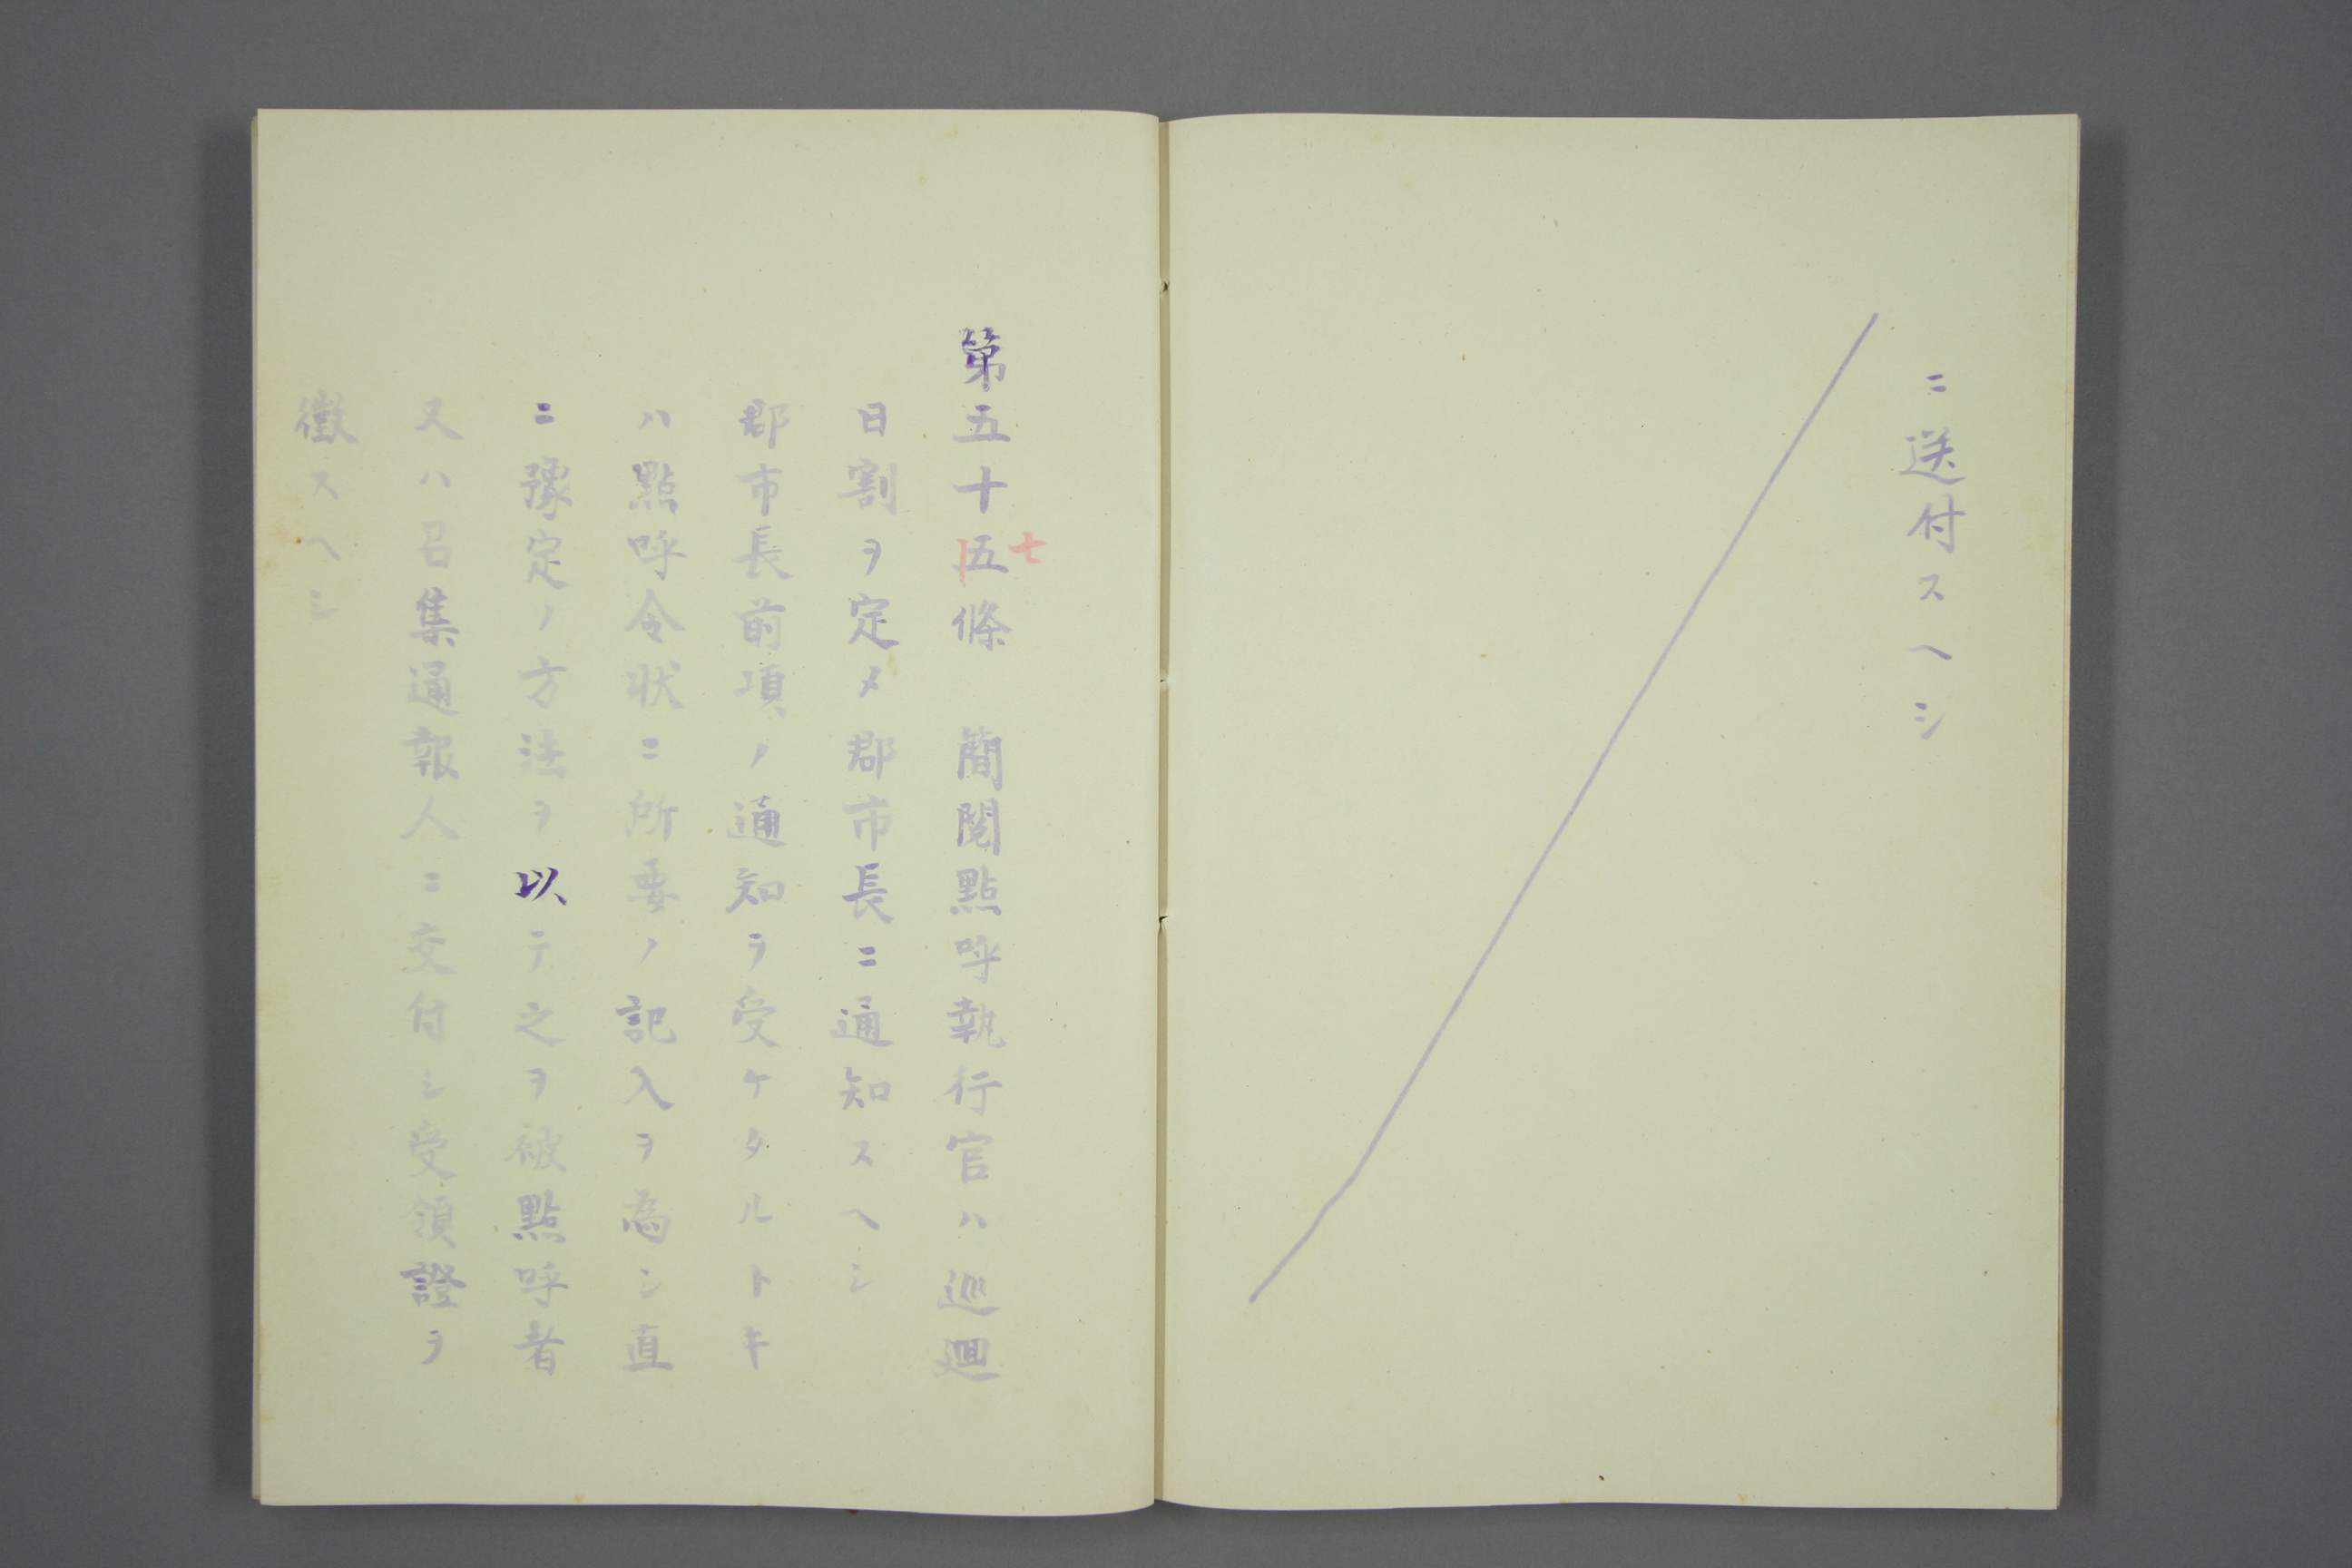 ニ送付スヘシ
第五十五條　簡閲點呼執行官ハ巡廻
七
日割ヲ定メ郡市長ニ通知スヘシ
郡市長前項ノ通知ヲ受ケタルトキ
ハ點呼令状ニ所要ノ記入ヲ為シ直
ニ豫定ノ方法ヲ以テ之ヲ被點呼者
又ハ召集通報人ニ交付シ受領證ヲ
徴スヘシ